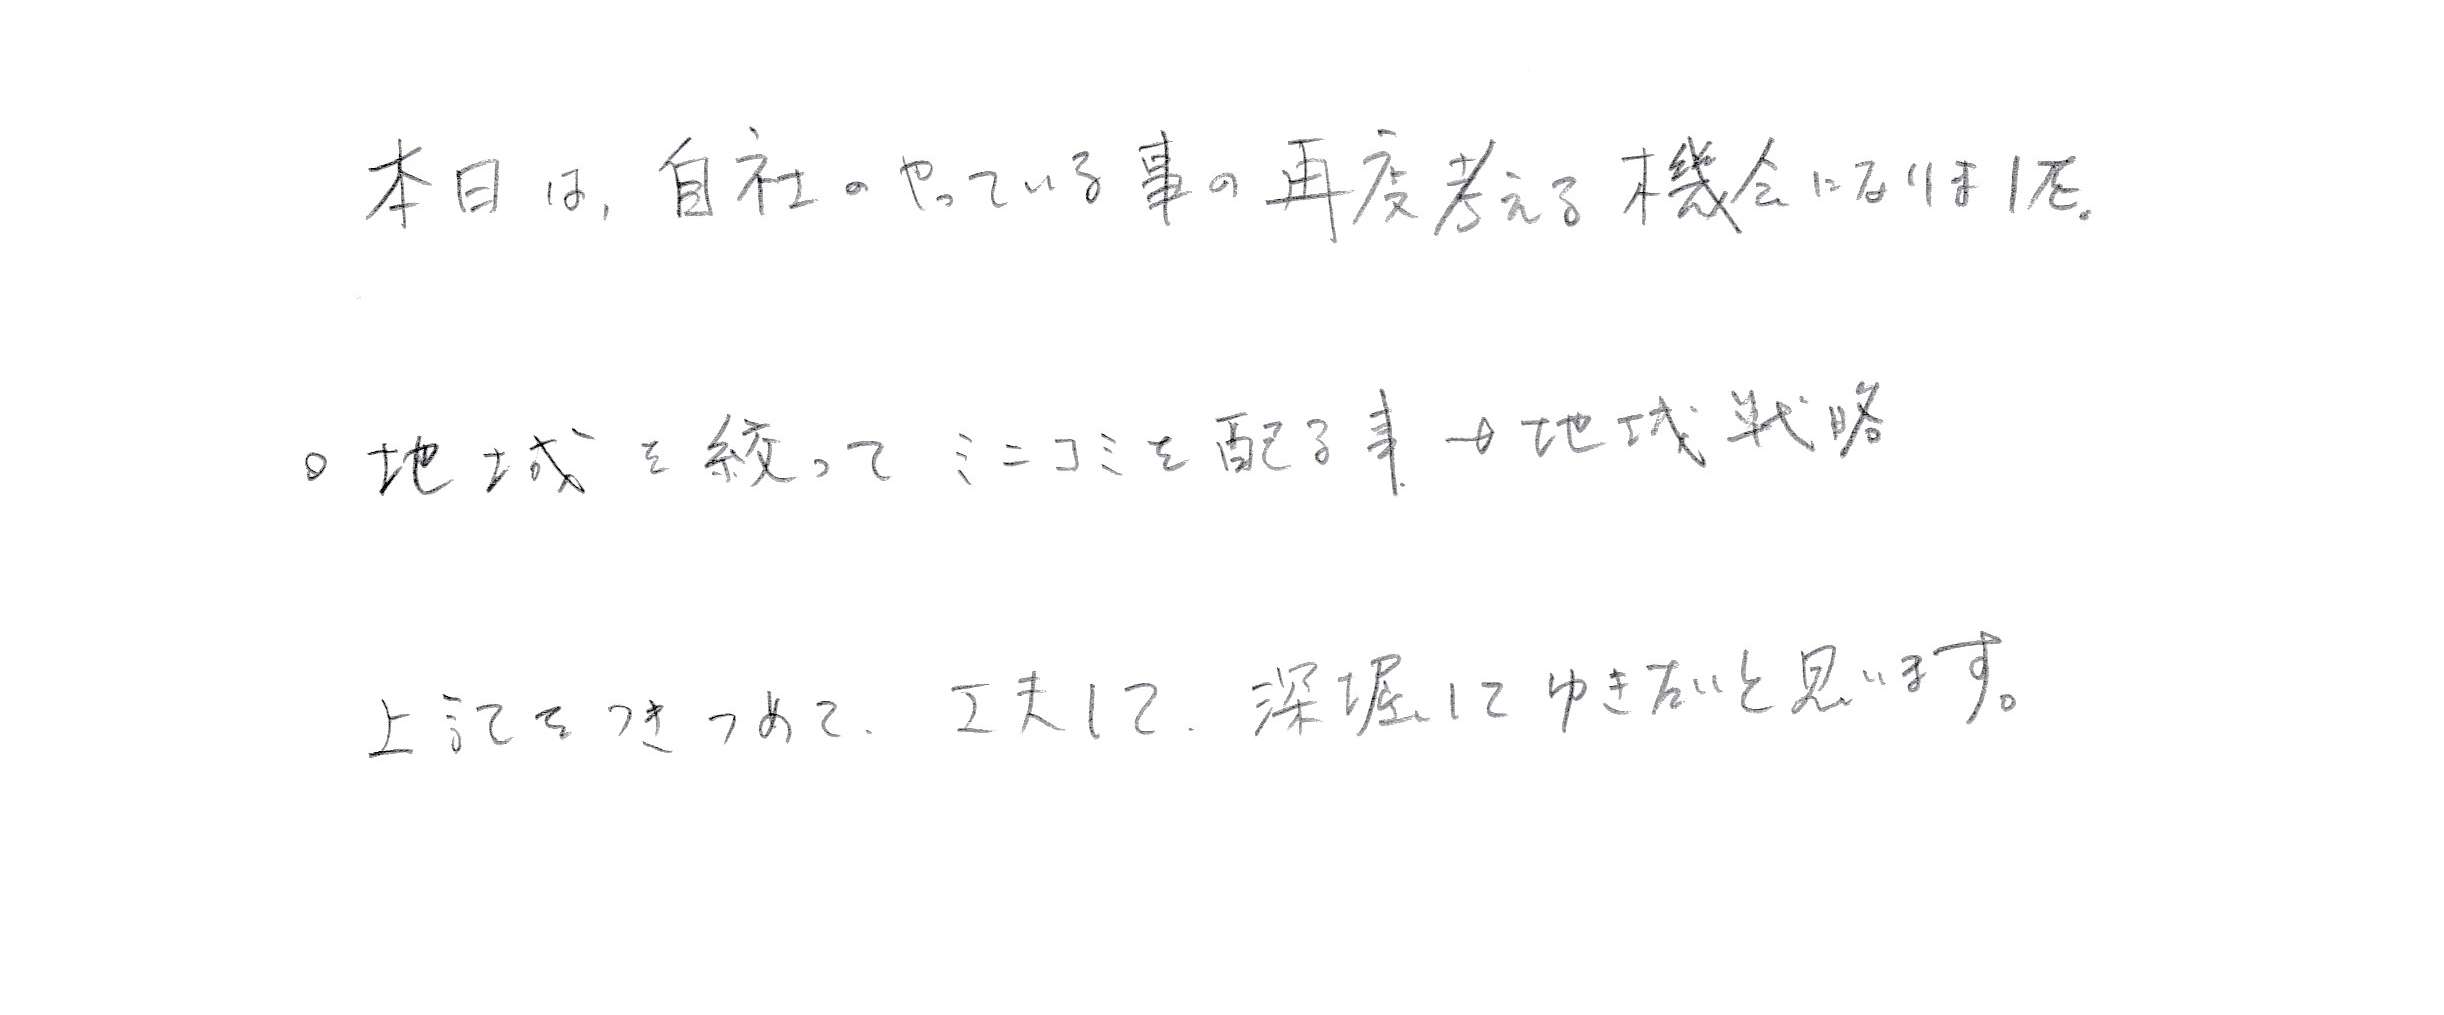 本日は、自社のやっている事の再度考える機会になりました。
○地域を絞ってミニコミを配る事→地域戦略
上記をつきつめて、工夫して、深堀してゆきたいと思います。